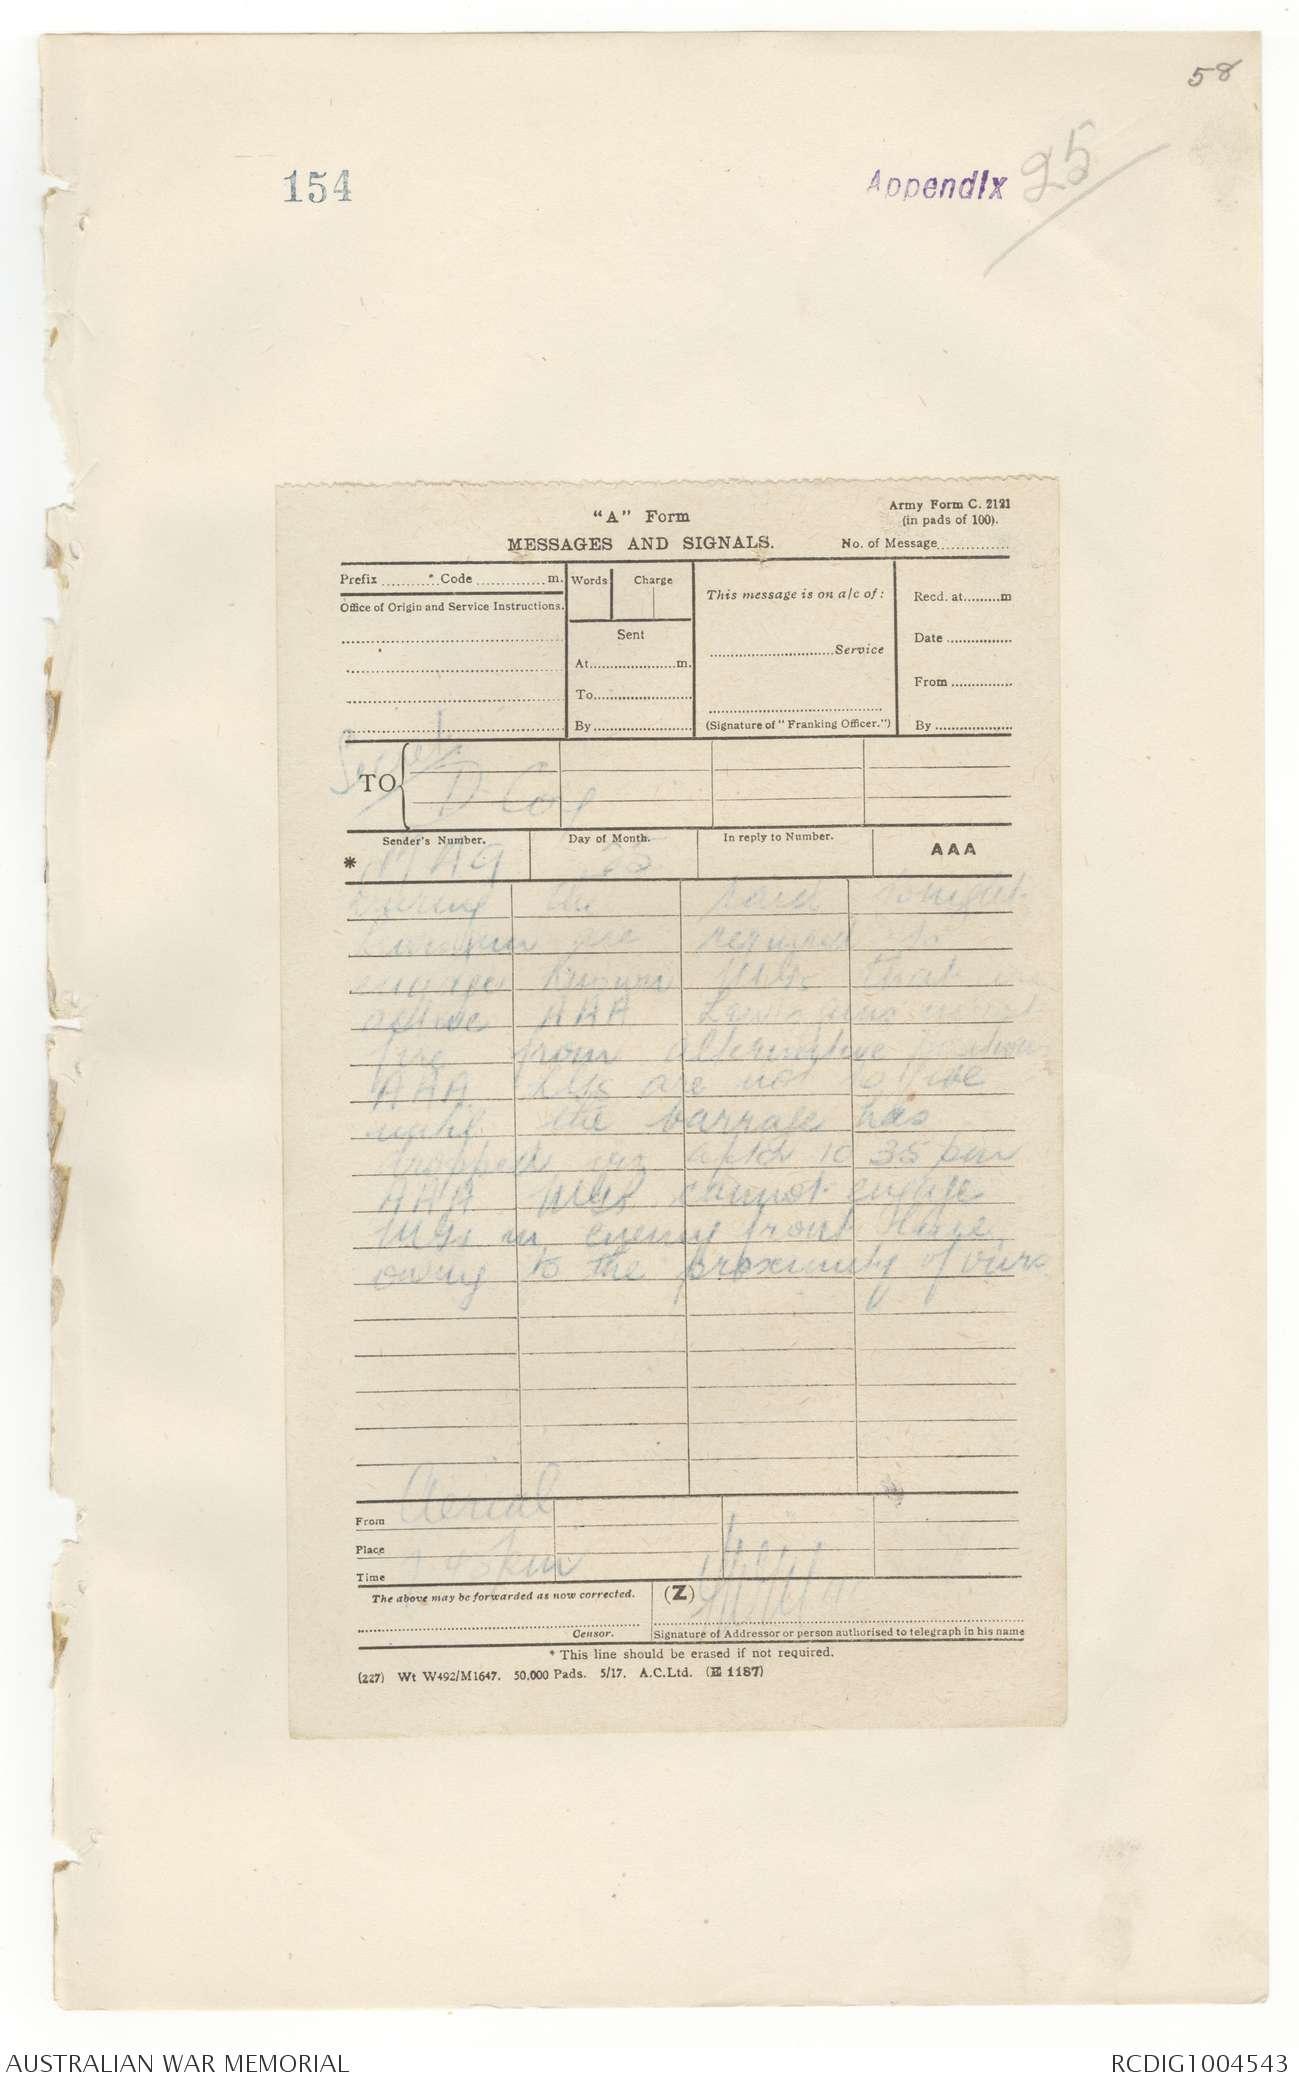 58
154
Appendix 25
"A" Form
Army Form C. 2121
(in pads of 100).
MESSAGES AND SIGNALS.
No. of Message
Prefix Code m.
Words Charge
This message is on a/c of:
Recd. at m
Office of Origin and Service Instructions.
Sent
Date
At m.
Service
To
From
By
(Signature of "Franking Officer.")
By
Secret
TO
D Coy
Sender's Number.
Day of Month.
In reply to Number.
AAA
*
25
During the raid tonight
are required to
engage known MGs that
active AAA Lewis guns must
fire from alternative positions
AAA LGs are not to fire
until the barrage has
dropped viz after 10 35 pm
AAA MGs cannot engage
MGs in enemy front line
owing to the proximity of ours
From Aerial
Place
Time 45 pm
The above may be forwarded as now corrected.
(Z)
Censor.
Signature of Addressor or person authorised to telegraph in his name
* This line should be erased if not required.
(227) Wt W492/M1647. 50,000 Pads. 5/17. A.C.Ltd. (E 1187)
AUSTRALIAN WAR MEMORIAL
RCDIG1004543